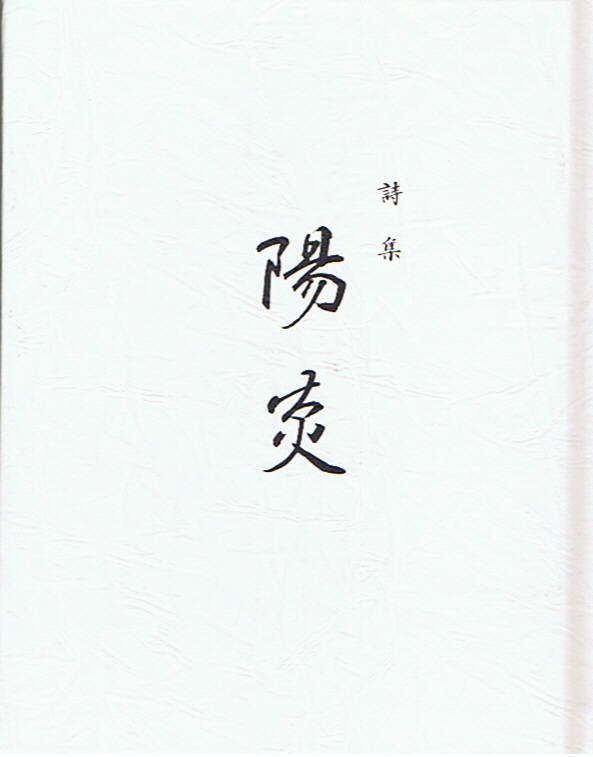 詩集
陽炎